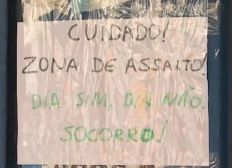 CUIDADO!
ZONA DE ASSALTO!
DIA SIM, DIA NÃO.
SOCORRO!